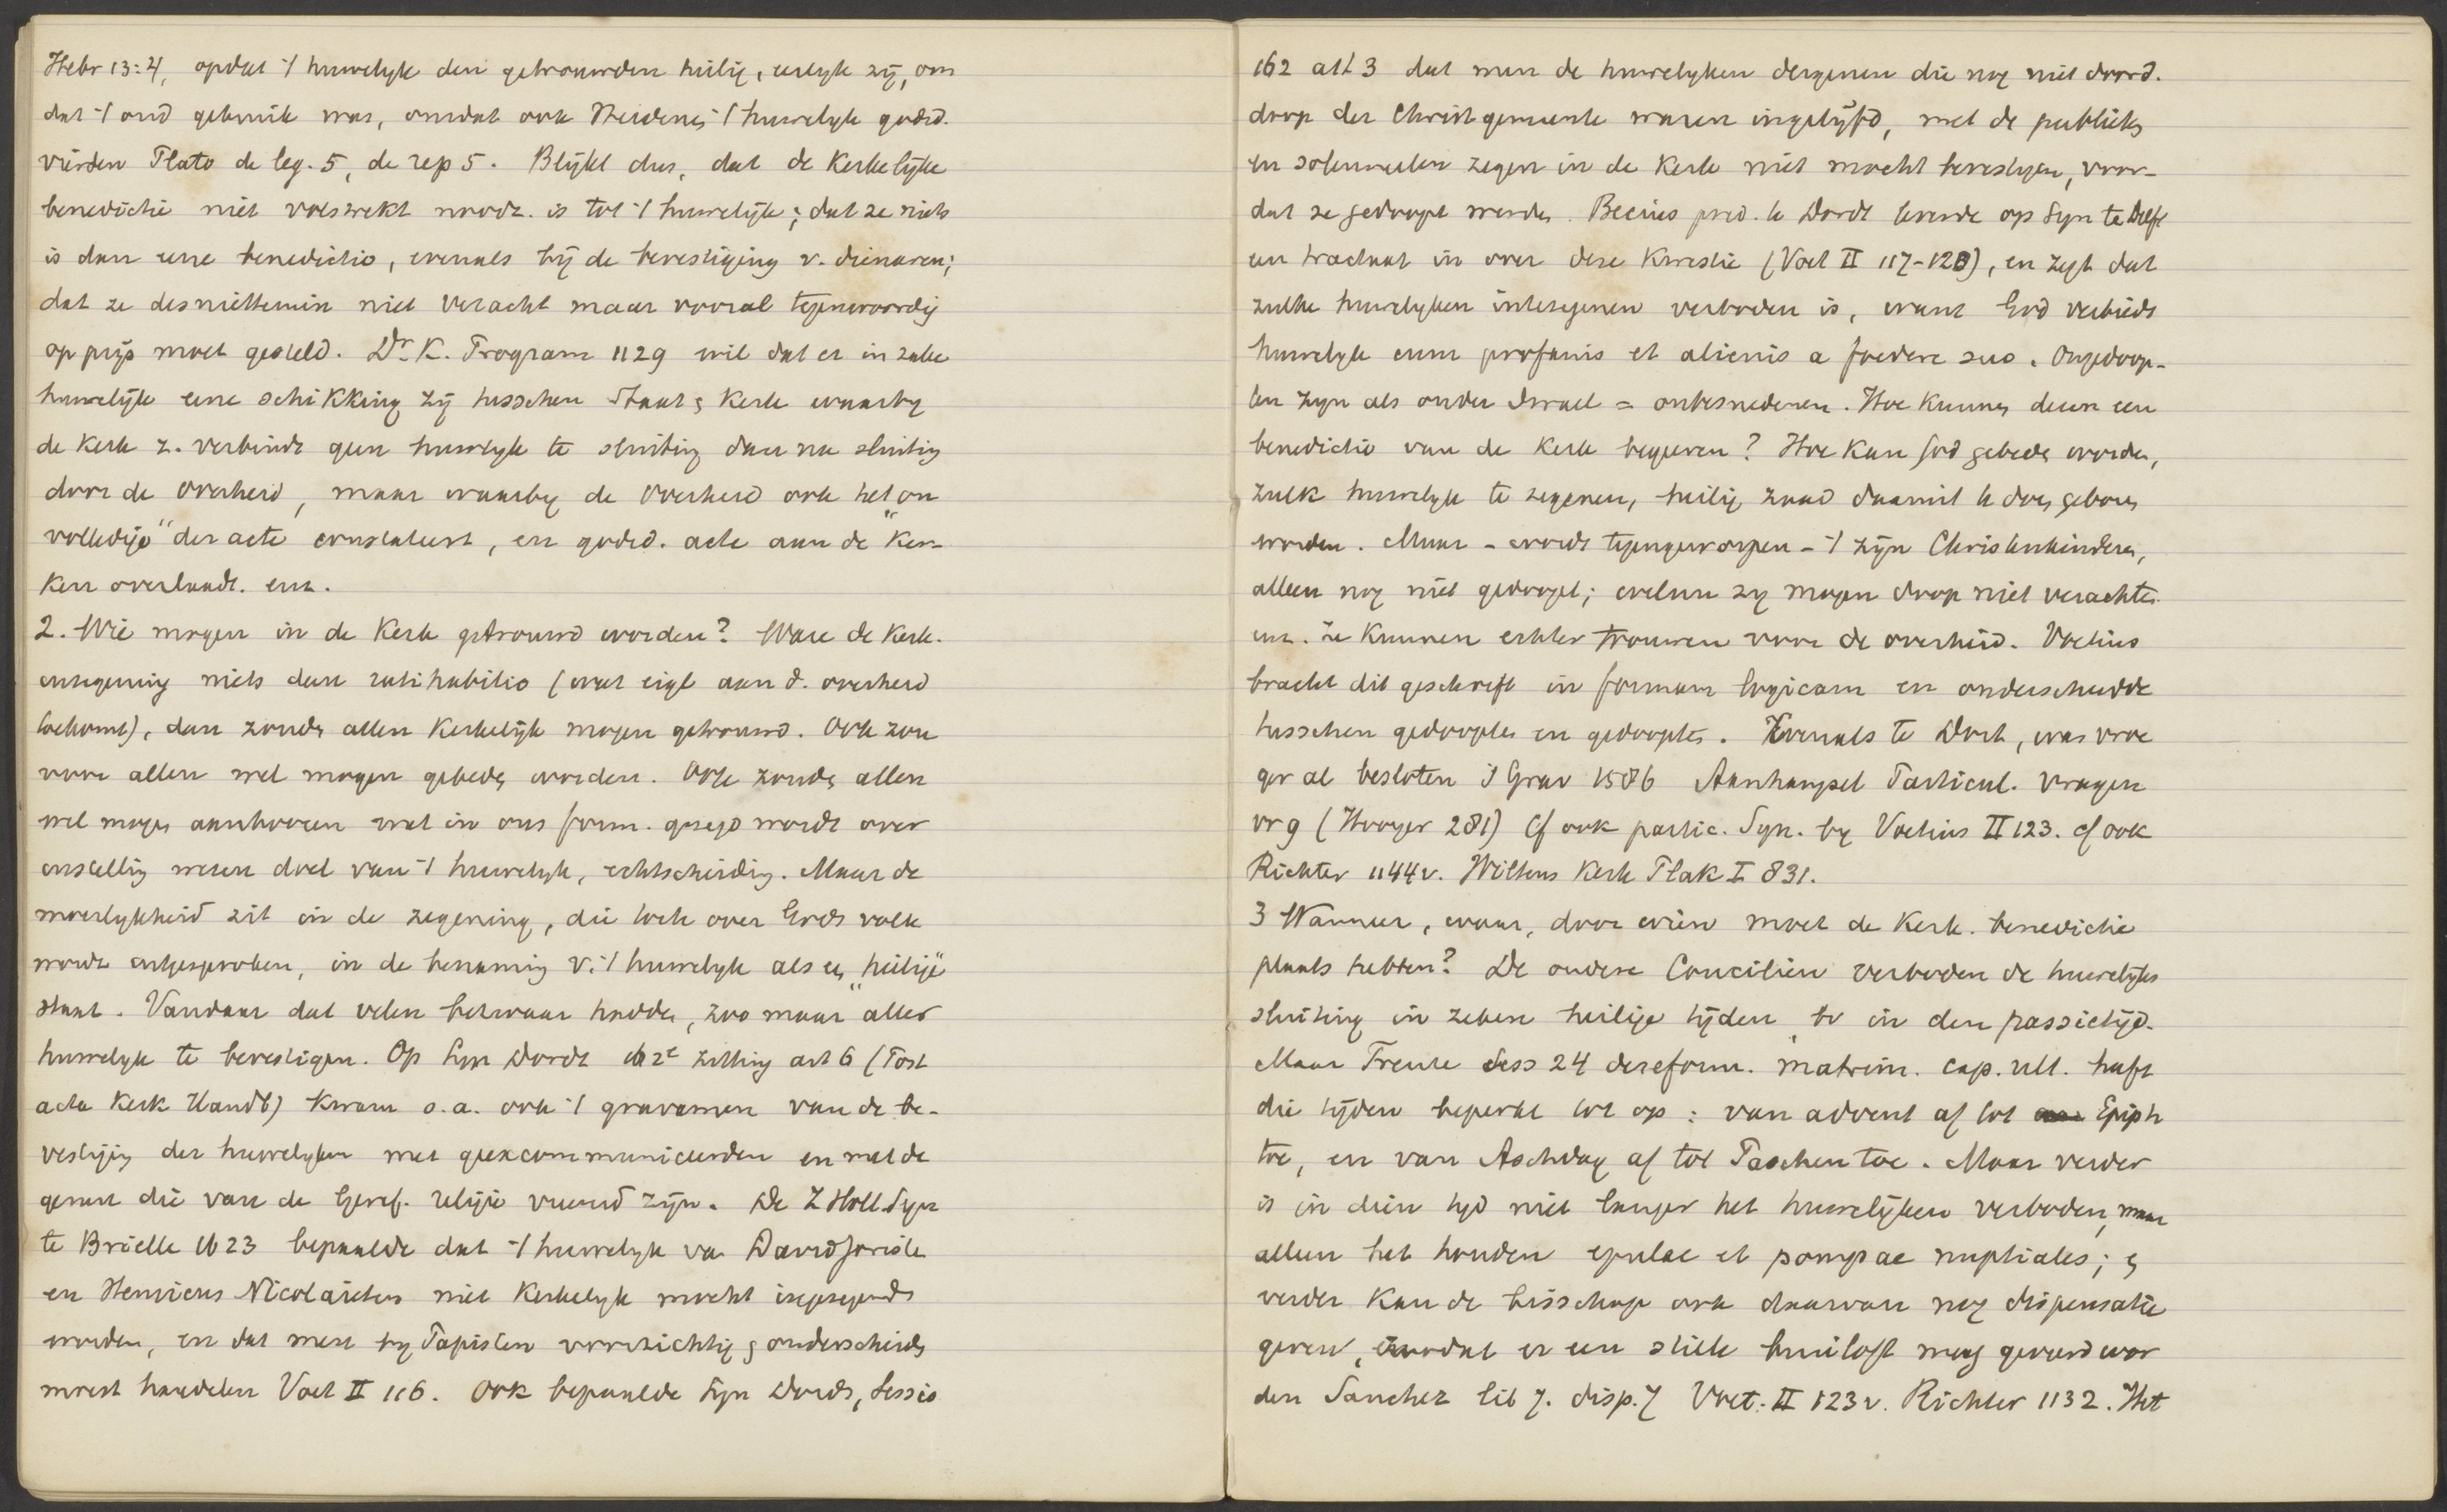 Hebr 13:4, opdat 't huwelyk den getrouwden heilig, eerlyk zij, om
dat 't oud gebruik was, omdat ook Heidenen 't huwelyk godsd.
vierden Plato de leg. 5, de rep 5. Blijkt dus, dat de Kerkelijke
benedictie niet volstrekt noodz. is tot 't huwelijk; dat ze niets
is dan eene benedictio, evenals bij de bevestiging v. dienaren;
dat ze desniettemin niet veracht maar vooral tegenwoordig
op prijs moet gesteld. Dr. K. Program 1129 wil dat er in zake
huwelijk eene schikking zij tusschen Staat & Kerk waarby
de Kerk z. verbindt geen huwelyk te sluiting dan na sluiting
door de Overheid, maar waarby de Overheid ook het "on
volledige" der acte constateert, en godsd. acte aan de Ker-
ken overlaadt. enz.
2. Wie mogen in de Kerk getrouwd worden? Ware de Kerk.
inzegening niets dan ratihabitio (wat eigl aan d. overheid
toekomt), dan zouden allen Kerkelijk mogen getrouwd. Ook zou
voor allen wel mogen gebeden worden. Ook zouden allen
wel mogen aanhooren wat in ons form. gezegd wordt over
instelling wezen doel van 't huwelyk, echtscheiding. Maar de
moeilykheid zit in de zegening, die toch over Gods volk
wordt uitgesproken, in de benaming v. 't huwelyk als een "heilige"
staat. Vandaar dat velen bezwaar hadden, zoo maar "aller
huwelyk te bevestigen. Op Syn Dordt 162e zitting art 6 (Post
acta Kerk Handb) kwam o.a. ook 't gravamen van de be-
vestiging der huwelyken met geexcommuniceerden en met de
genen die van de Geref. religie vreemd zijn. De Z Holl. Syn
te Brielle 1623 bepaalde dat 't huwelyk van Davidjoristen
en Henricus Nicolaïeten niet Kerkelyk mocht ingezegend
worden, en dat men by Papisten voorzichtig & onderscheiden
moest handelen Voet II 116. Ook bepaalde Syn Dordr, Sessio
162 art 3 dat men de huwelyken dergenen die nog niet doord.
doop der Christ gemeente waren ingelijfd, met de publieke
en solemneelen zegen in de Kerk niet mocht bevestigen, voor-
dat ze gedoopt werden. Becius pred. te Dordt leverde op Syn te Delft
een tractaat in over deze Kwestie (Voet II 117-123), en zegt dat
zulke huwelyken intezegenen verboden is, want God verbiedt
huwelyk cum profanis et alienis a foedere suo. Ongedoop-
ten zyn als onder Israel = onbesnedenen. Hoe kunnen dezen een
benedictio van de Kerk begeeren? Hoe kan God gebeden worden,
zulk huwelyk te zegenen, heilig zaad daaruit te doen geboren
worden. Maar - wordt tegengeworpen - 't zijn Christenkinderen,
alleen nog niet gedoopt; welnu zy mogen doop niet verachten
enz. Ze kunnen echter trouwen voor de overheid. Voetius
bracht dit geschrift in formam logicam en onderscheidde
tusschen gedoopten en gedoopten. Evenals te Dort, was vroe
ger al besloten 's Grav 1586 Aanhangsel Particul. vragen
vr 9 (Hooyer 281) Cf ook partic. Syn. by Voetius II 123. cf ook
Richter 1144v. Wiltens Kerk Plak I 831.
3 Wanneer, waar, door wien moet de Kerk. benedictie
plaats hebben? De oudere Conciliën verboden de huwelyks
sluiting in zekere heilige tijden, bv in den passietijd.
Maar Trente Sess 24 de reform. matrim. cap. ult. heeft
die tijden beperkt tot op: van advent af tot Epiph
toe, en van Aschdag af tot Paschen toe. Maar verder
is in dien tyd niet langer het huwelijken verboden, maar
alleen het houden epulae et pompae nuptiales; &
verder kan de bisschop ook daarvan nog dispensatie
geven, zoodat er een stille bruiloft mag gevierd wor
den Sanchez lib 7. disp. 7 Voet. II 123v. Richter 1132. Het